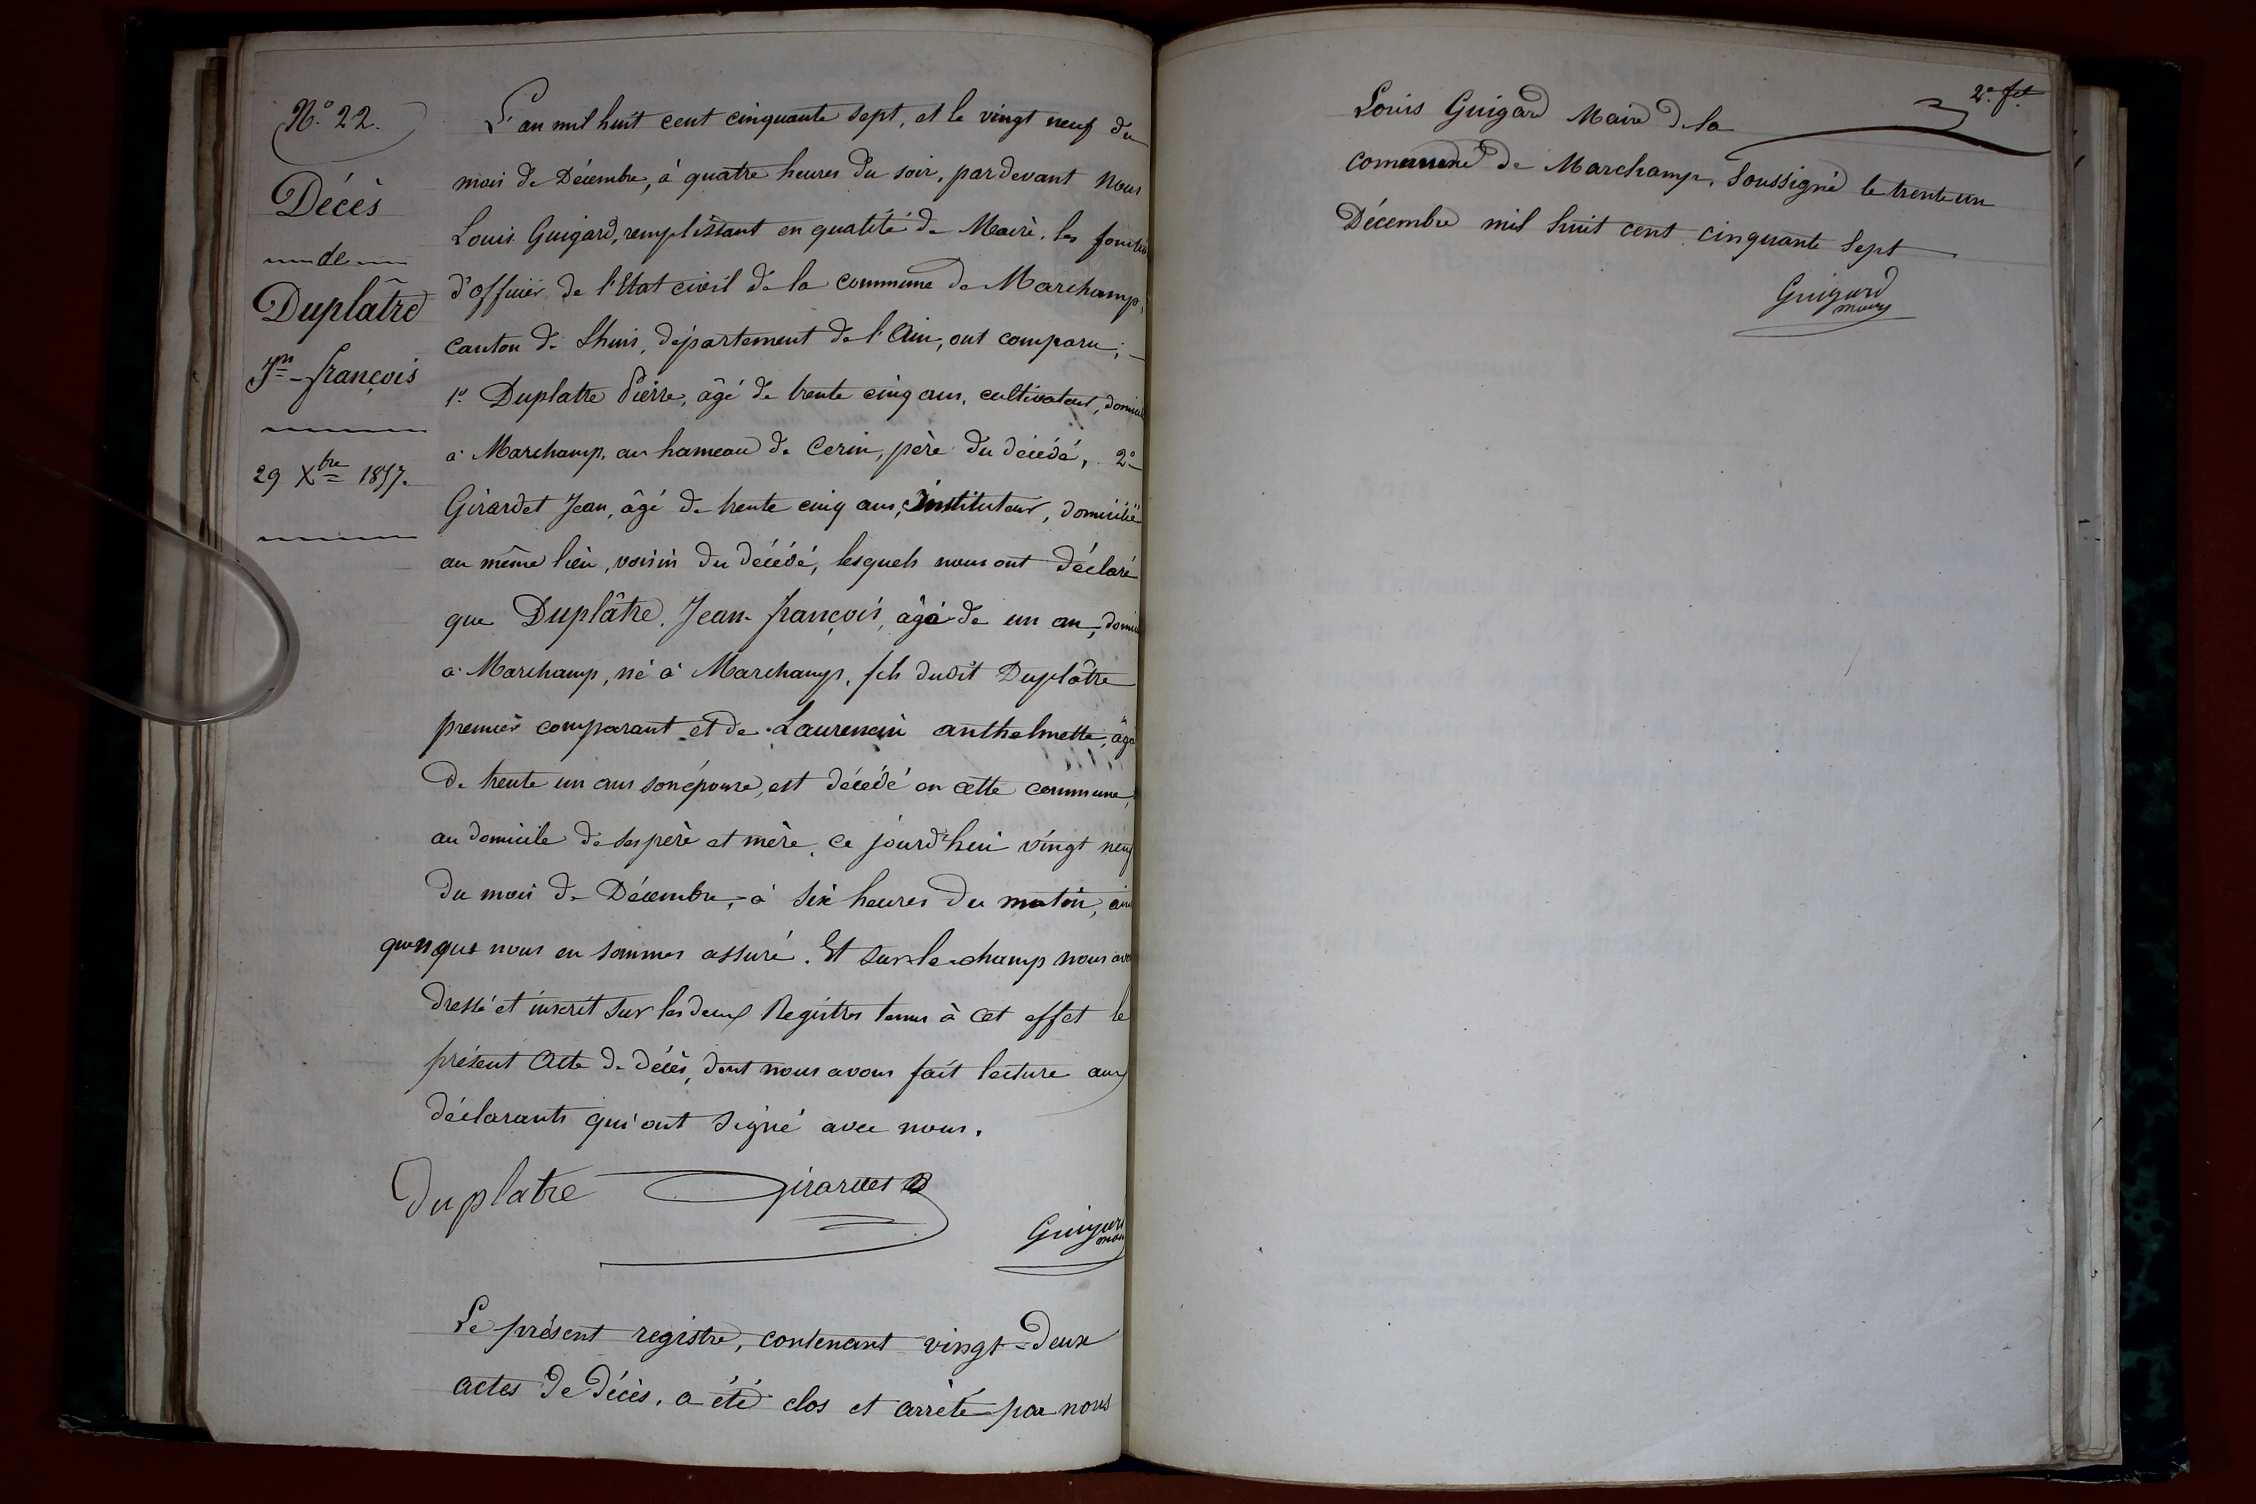 N.º 22.
Décès
de
Duplâtre
Jn-françois
29 Xbre 1857.
L'an mil huit cent cinquante sept, et le vingt neuf du
mois de Décembre, à quatre heures du soir, pardevant Nous
Louis Guigard, remplissant en qualité de Maire, les
d'officier de l'Etat civil de la commune de Marchamp,
canton de Lhuis, département de l'Ain, ont comparu;
1º Duplatre Pierre, âgé de trente cinq ans, cultivateur,
à Marchamp, au hameau de Cerin, père du décédé, 2º
Girardet Jean, âgé de trente cinq ans, Instituteur, domicilié
au même lieu, voisin du décédé, lesquels nous ont déclaré
que Duplâtre Jean-françois, âgé de un an,
à Marchamp, né à Marchamp, fils dudit Duplâtre
premier comparant et de Laurencin anthelmette, âgé
de trente un ans son épouse, est décédé en cette commune,
au domicile de ses père et mère, ce jourd'hui vingt neuf
du mois de Décembre, à six heures du matin,
que nous en sommes assuré. Et sur-le-champ nous
dressé et inscrit sur les deux Registres tenus à cet effet le
présent Acte de décès, dont nous avons fait lecture aux
déclarants qui ont signé avec nous.
duplatre Girardet
Guigard
Le présent registre, contenant vingt-deux
actes de décès, a été clos et arrêté par nous
2e. fet.
Louis Guigard Maire de la
commune de Marchamp, soussigné le trente un
Décembre mil huit cent cinquante sept
Guigard
maire